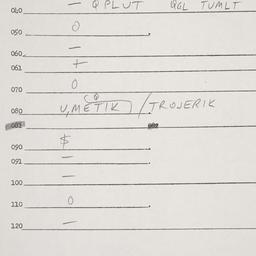 040 — QPLUT QGL TUMLT
050 0
060 —
061 +
070 0
080 U, METIK / TROJERIK
090 $
091 —
100 —
110 0
120 —